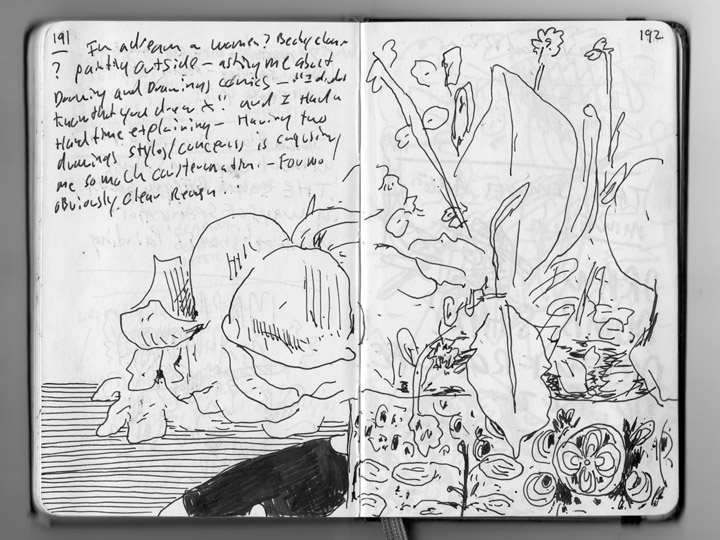 191
In a dream a women? Becky
? painting outside – asking me about
Drawing and Drawings comics – "I didnt
know that you drew
and I Had a
Hard time explaining – Having two
drawings styles/concerns is causing
me so much consternation. – For no
obviously clear Reason.
192